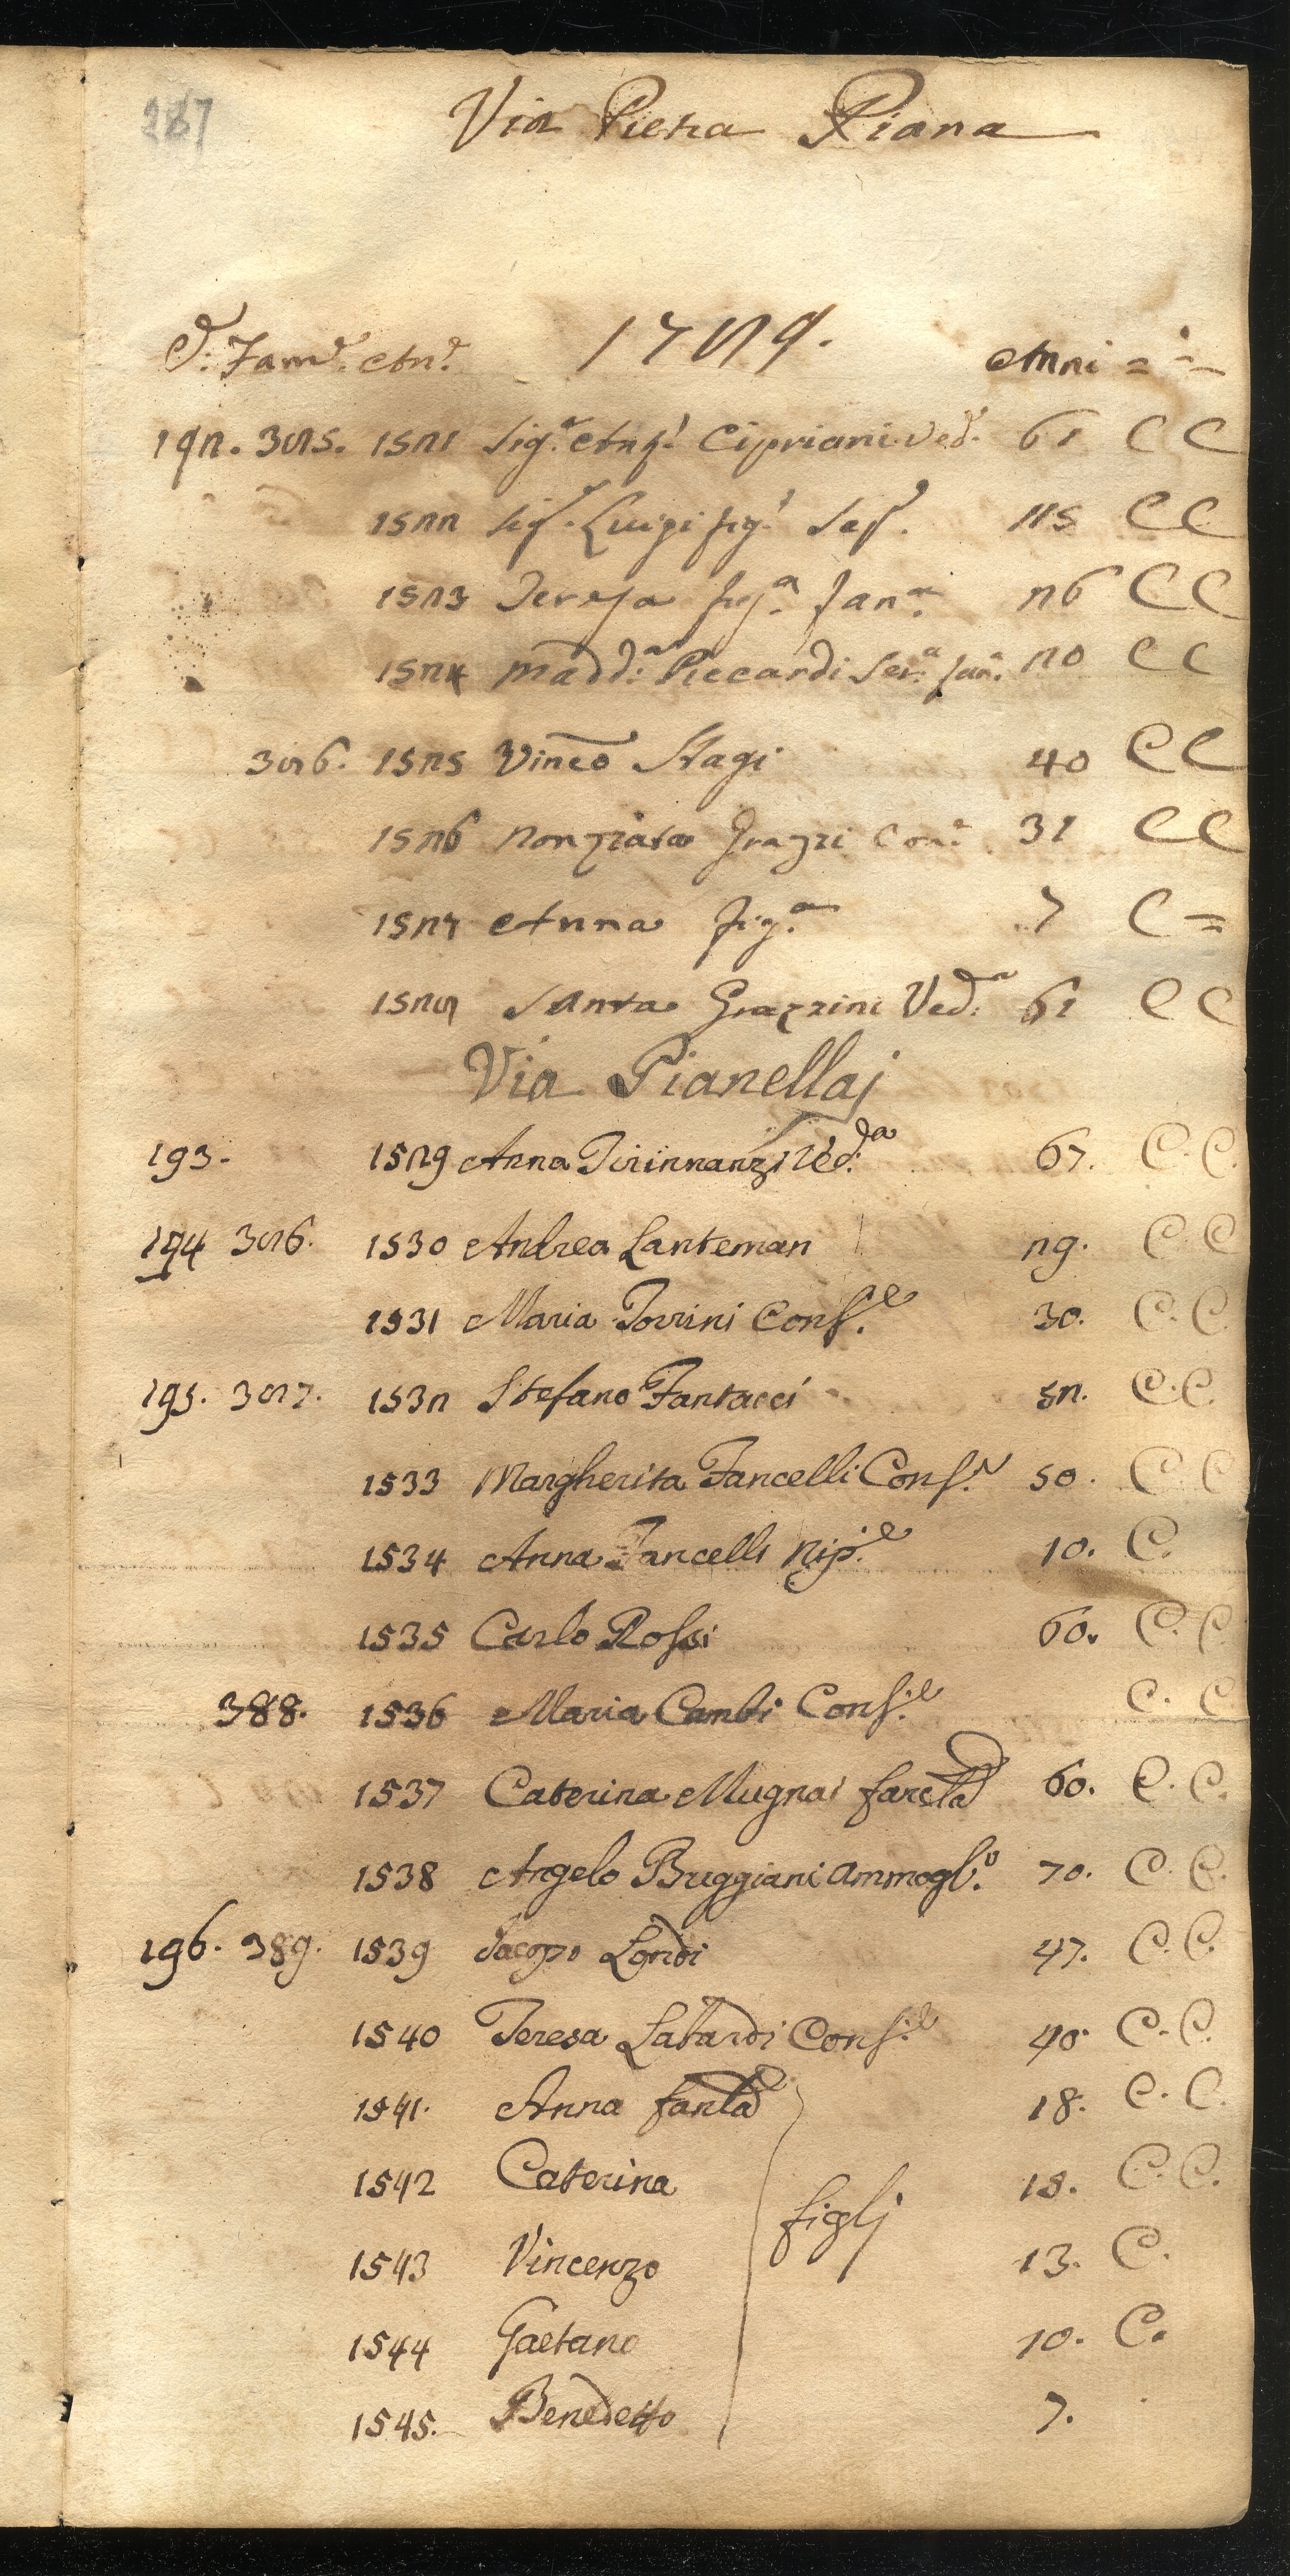 287
Via Pietra Piana
C. Fam.e An.e 1789. Anni = =
192. 385. 1521 Sig.a Ang.a Cipriani Ved. 61 C C
1522 Sig. Luigi fig. 25 C C
1523 Teresa fig.a fan.a 26 C C
1524 Madd.a Piccardi Ser.a fan. 20 C C
386. 1525 Vinco Stagi 40 C C
1526 Nonziata Grazzi Con. 31 C C
1527 Anna fig.a 7 C =
1528 Santa Grazzini Ved.a 61 C C
Via Pianellaj
193. 1529 Anna Tirinnanzi Ved.a 67. C. C.
194 386. 1530 Andrea Lanteman 29. C. C
1531 Maria Torrini Cons.e 30. C. C
195. 387. 1532 Stefano Fantacci 52. C. C.
1533 Margherita Fancelli Cons.e 50. C C
1534 Anna Fancelli Nip.e 10. C.
1535 Carlo Rossi 60. C. C
388. 1536 Maria Cambi Cons.e C. C
1537 Caterina Mugnai 60. C. C.
1538 Angelo Buggiani Ammogl.o 70. C. C.
196. 389. 1539 Jacopo Londi 47. C. C.
1540 Teresa Labardi Cons.e 40. C. C.
1541. Anna 18. C. C.
1542 Caterina 15. C. C.
figlj
1543 Vincenzo 13. C.
1544 Gaetano 10. C.
1545. Benedetto 7.